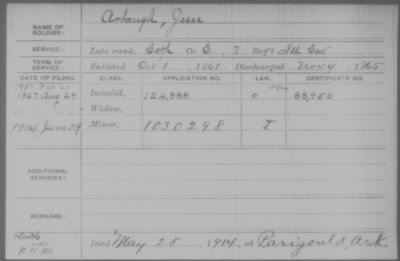 NAME OF SOLDIER: Arbaugh, Jesse
SERVICE: Late rank, Corp Co. E, 7 Reg't Ill Cav
TERM OF SERVICE: Enlisted Oct 1, 1861 Discharged Nov 4, 1865
DATE OF FILING. CLASS. APPLICATION NO. LAW. CERTIFICATE NO.
1867 Aug 29 Invalid, 124,888 88,956
Widow,
1914 June 29 Minor, 1030298 J
ADDITIONAL SERVICES:
REMARKS:
Died May 28, 1914, at Paragould, Ark.